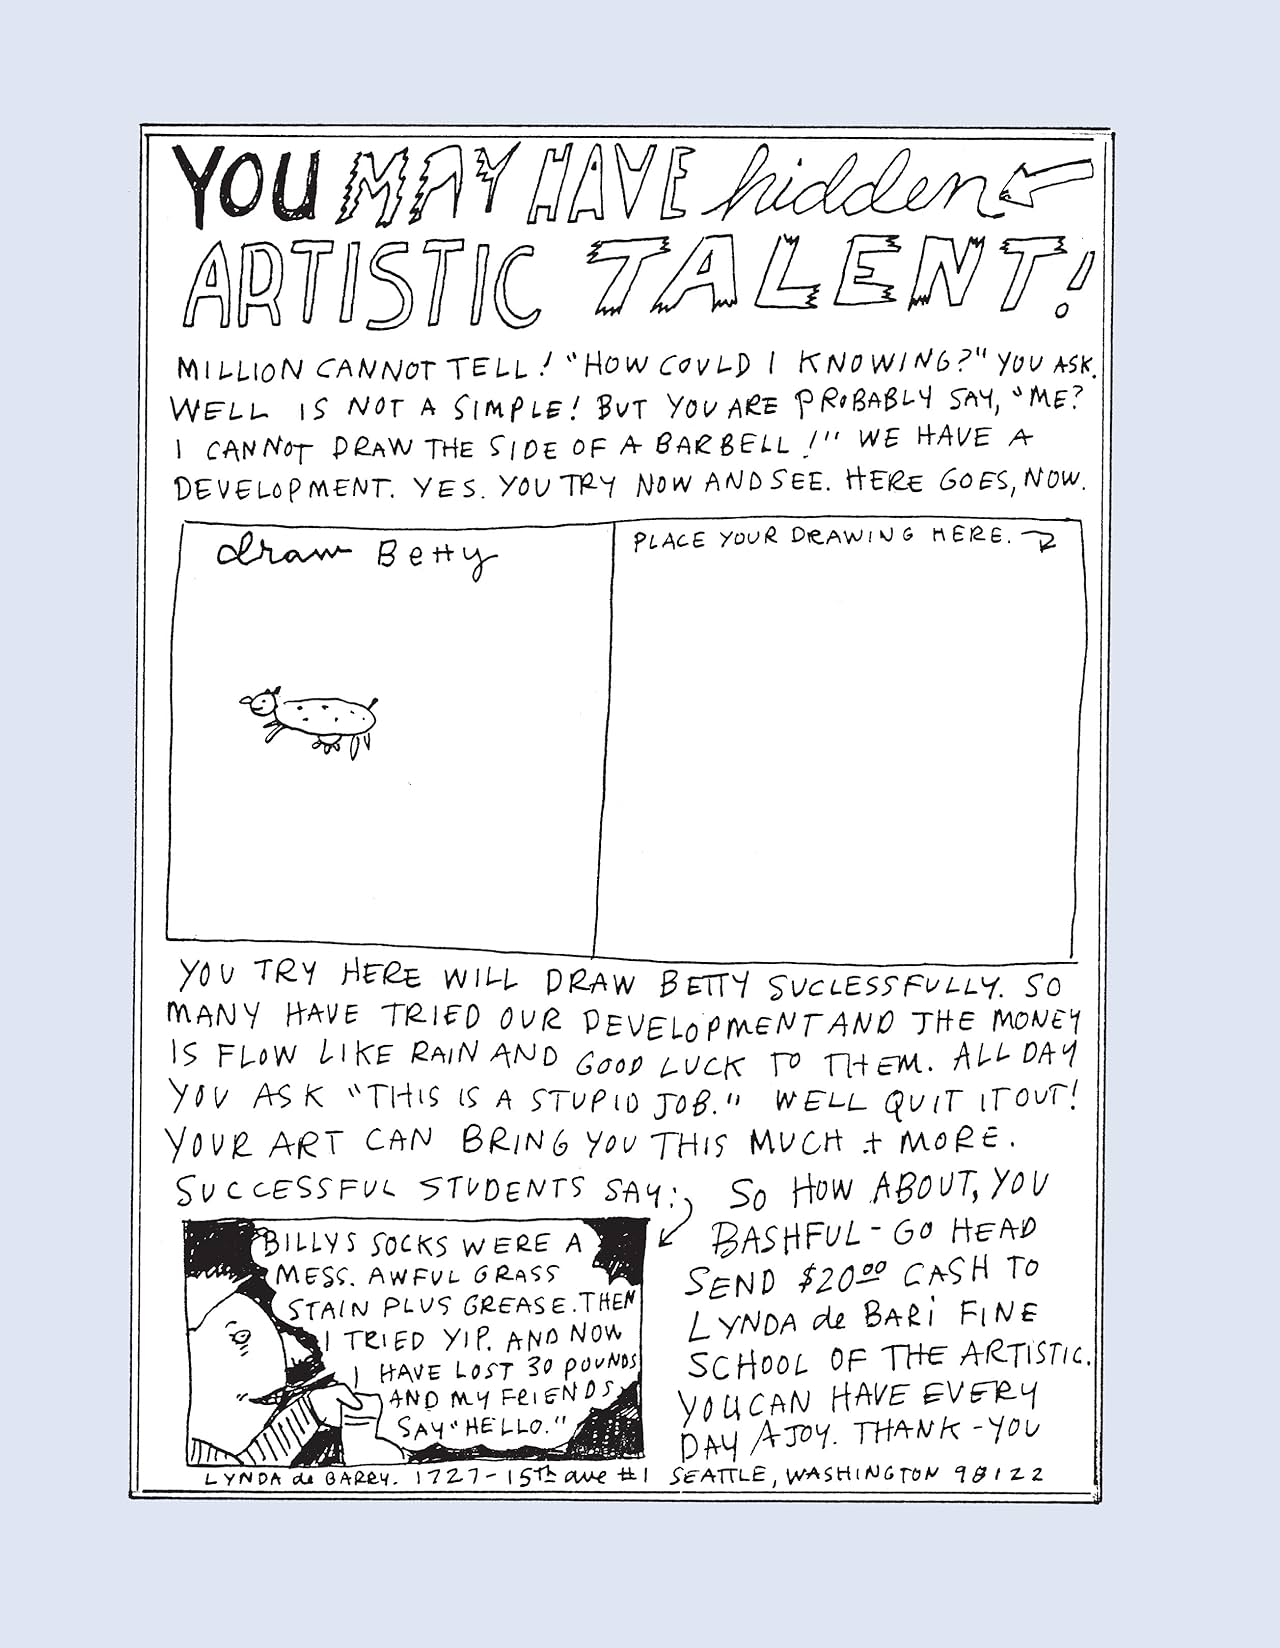 YOU MAY HAVE hidden
ARTISTIC TALENT!
MILLION CANNOT TELL! "HOW COULD I KNOWING?" YOU ASK.
WELL IS NOT A SIMPLE! BUT YOU ARE PROBABLY SAY, "ME?
I CANNOT DRAW THE SIDE OF A BARBELL!" WE HAVE A
DEVELOPMENT. YES. YOU TRY NOW AND SEE. HERE GOES, NOW.
draw Betty
PLACE YOUR DRAWING HERE.
YOU TRY HERE WILL DRAW BETTY SUCLESSFULLY. SO
MANY HAVE TRIED OUR DEVELOPMENT AND THE MONEY
IS FLOW LIKE RAIN AND GOOD LUCK TO THEM. ALL DAY
YOU ASK "THIS IS A STUPID JOB." WELL QUIT IT OUT!
YOUR ART CAN BRING YOU THIS MUCH + MORE.
SUCCESSFUL STUDENTS SAY:
BILLYS SOCKS WERE A
MESS. AWFUL GRASS
STAIN PLUS GREASE. THEN
I TRIED YIP. AND NOW
I HAVE LOST 30 POUNDS
AND MY FRIENDS
SAY "HELLO."
SO HOW ABOUT, YOU
BASHFUL - GO HEAD
SEND $20.00 CASH TO
LYNDA de BARi FINE
SCHOOL OF THE ARTISTIC.
YOU CAN HAVE EVERY
DAY A JOY. THANK-YOU
LYNDA de BARRY. 1727-15th ave #1 SEATTLE, WASHINGTON 98122